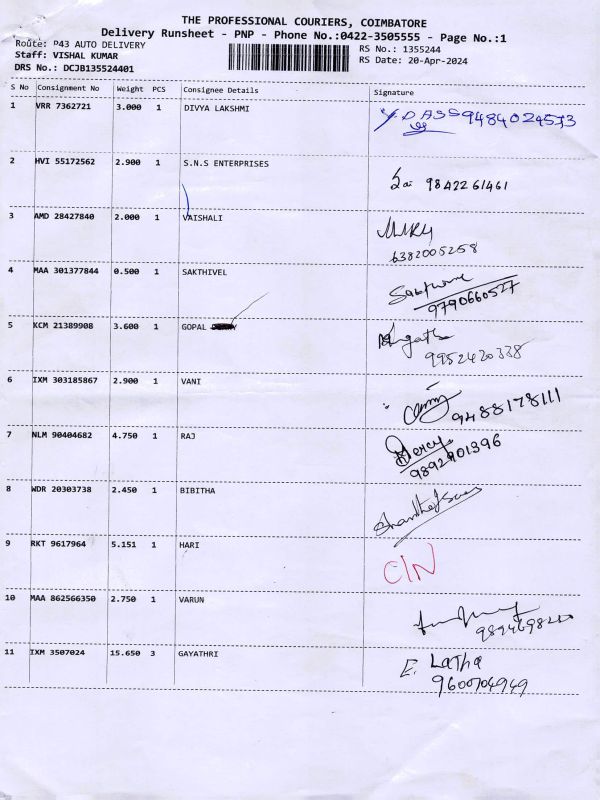 THE PROFESSIONAL COURIERS, COIMBATORE
Delivery Runsheet - PNP - Phone No.:0422-3505555 - Page No.:1
Route: P43 AUTO DELIVERY
RS No.: 1355244
Staff: VISHAL KUMAR
RS Date: 20-Apr-2024
DRS No.: DCJB135524401
S No Consignment No Weight PCS Consignee Details Signature
1 VRR 7362721 3.000 1 DIVYA LAKSHMI
Y.DASS 9484024573
2 HVI 55172562 2.900 1 S.N.S ENTERPRISES
9842261461
3 AMD 28427840 2.000 1 VAISHALI
6382005258
4 MAA 301377844 0.500 1 SAKTHIVEL
9790660527
5 KCM 21389908 3.600 1 GOPAL
9952420338
6 IXM 303185867 2.900 1 VANI
9488178111
7 NLM 90404682 4.750 1 RAJ
Mercy
8 WDR 20303738 2.450 1 BIBITHA
9 RKT 9617964 5.151 1 HARI
C/N
10 MAA 862566350 2.750 1 VARUN
11 IXM 3507024 15.650 3 GAYATHRI
E. Latha
9600704949